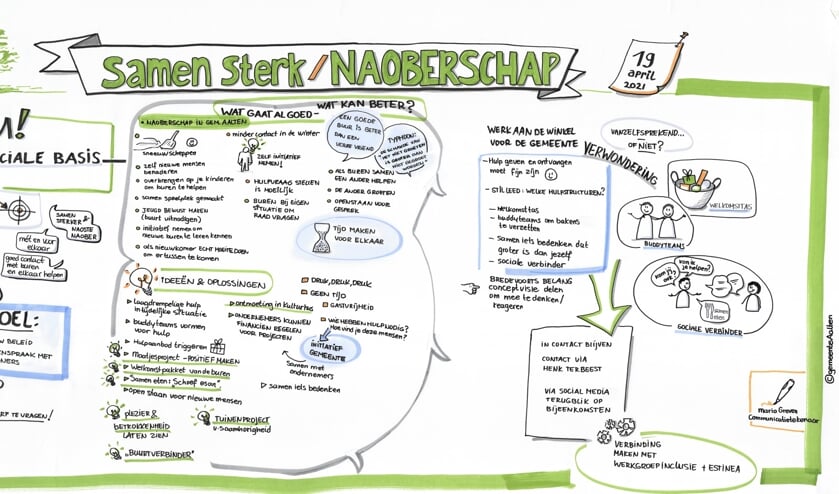 Samen Sterk / NAOBERSCHAP
19
april
2021
M!
CIALE BASIS
SAMEN
STERKER &
NAOSTE
NAOBER
mét en voor
elkaar
goed contact
met buren
en elkaar helpen
OEL:
N BELEID
ENSPRAAK MET
NERS
TE VRAGEN!
WAT GAAT AL GOED -
WAT KAN BETER?
NAOBERSCHAP IN GEM. AALTEN
sneeuwscheppen
zelf nieuwe mensen
benaderen
overbrengen op je kinderen
om buren te helpen
samen speelplek gemaakt
JEUGD BEWUST MAKEN
(buurt uitnodigen)
initiatief nemen om
nieuwe buren te leren kennen
als nieuwkomer ECHT MOEITE DOEN
om er tussen te komen
minder contact in de winter
ZELF INITIATIEF
NEMEN!
HULPVRAAG STELLEN
IS MOEILIJK
BUREN BIJ EIGEN
SITUATIE OM
RAAD VRAGEN
EEN GOEDE
BUUR IS BETER
DAN EEN
VERRE VRIEND
ALS BUREN SAMEN
EEN ANDER HELPEN
DE ANDER GROETEN
OPENSTAAN VOOR
GESPREK
TIJD MAKEN
VOOR ELKAAR
IDEEËN & OPLOSSINGEN
laagdrempelige hulp
in tijdelijke situatie
buddyteams vormen
voor hulp
Hulpaanbod triggeren
Maatjesproject - POSITIEF MAKEN
Welkomst-pakket van de buren
Samen eten: "Schuif es an"
open staan voor nieuwe mensen
PLEZIER &
BETROKKENHEID
LATEN ZIEN
"BUURTVERBINDER"
TUINENPROJECT
saamhorigheid
DRUK, DRUK, DRUK
GEEN TIJD
GASTVRIJHEID
ontmoeting in kulturhus
ONDERNEMERS KUNNEN
FINANCIËN REGELEN
VOOR PROJECTEN
samen met
ondernemers
samen iets bedenken
WE HEBBEN HULP NODIG?
Hoe vind je deze mensen?
INITIATIEF
GEMEENTE
WERK AAN DE WINKEL
VOOR DE GEMEENTE
- Hulp geven en ontvangen
moet fijn zijn
- STILLEED: WELKE HULPSTRUCTUREN?
- welkomsttas
- buddyteams om bakens
te verzetten
- Samen iets bedenken dat
groter is dan jezelf
- sociale verbinder
BREDEVOORTS BELANG
conceptvisie delen
om mee te denken/
reageren
VANZELFSPREKEND...
OF NIET?
VERWONDERING
WELKOMSTTAS
BUDDYTEAMS
kan ik
je helpen?
SAMEN
ETEN
SOCIALE VERBINDER
IN CONTACT BLIJVEN
CONTACT VIA
HENK TERBEEST
VIA SOCIAL MEDIA
TERUGBLIK OP
BIJEENKOMSTEN
VERBINDING
MAKEN MET
WERKGROEP INCLUSIE + ESTINEA
Maria Greven
Communicatietekenaar
©gemeenteAalten